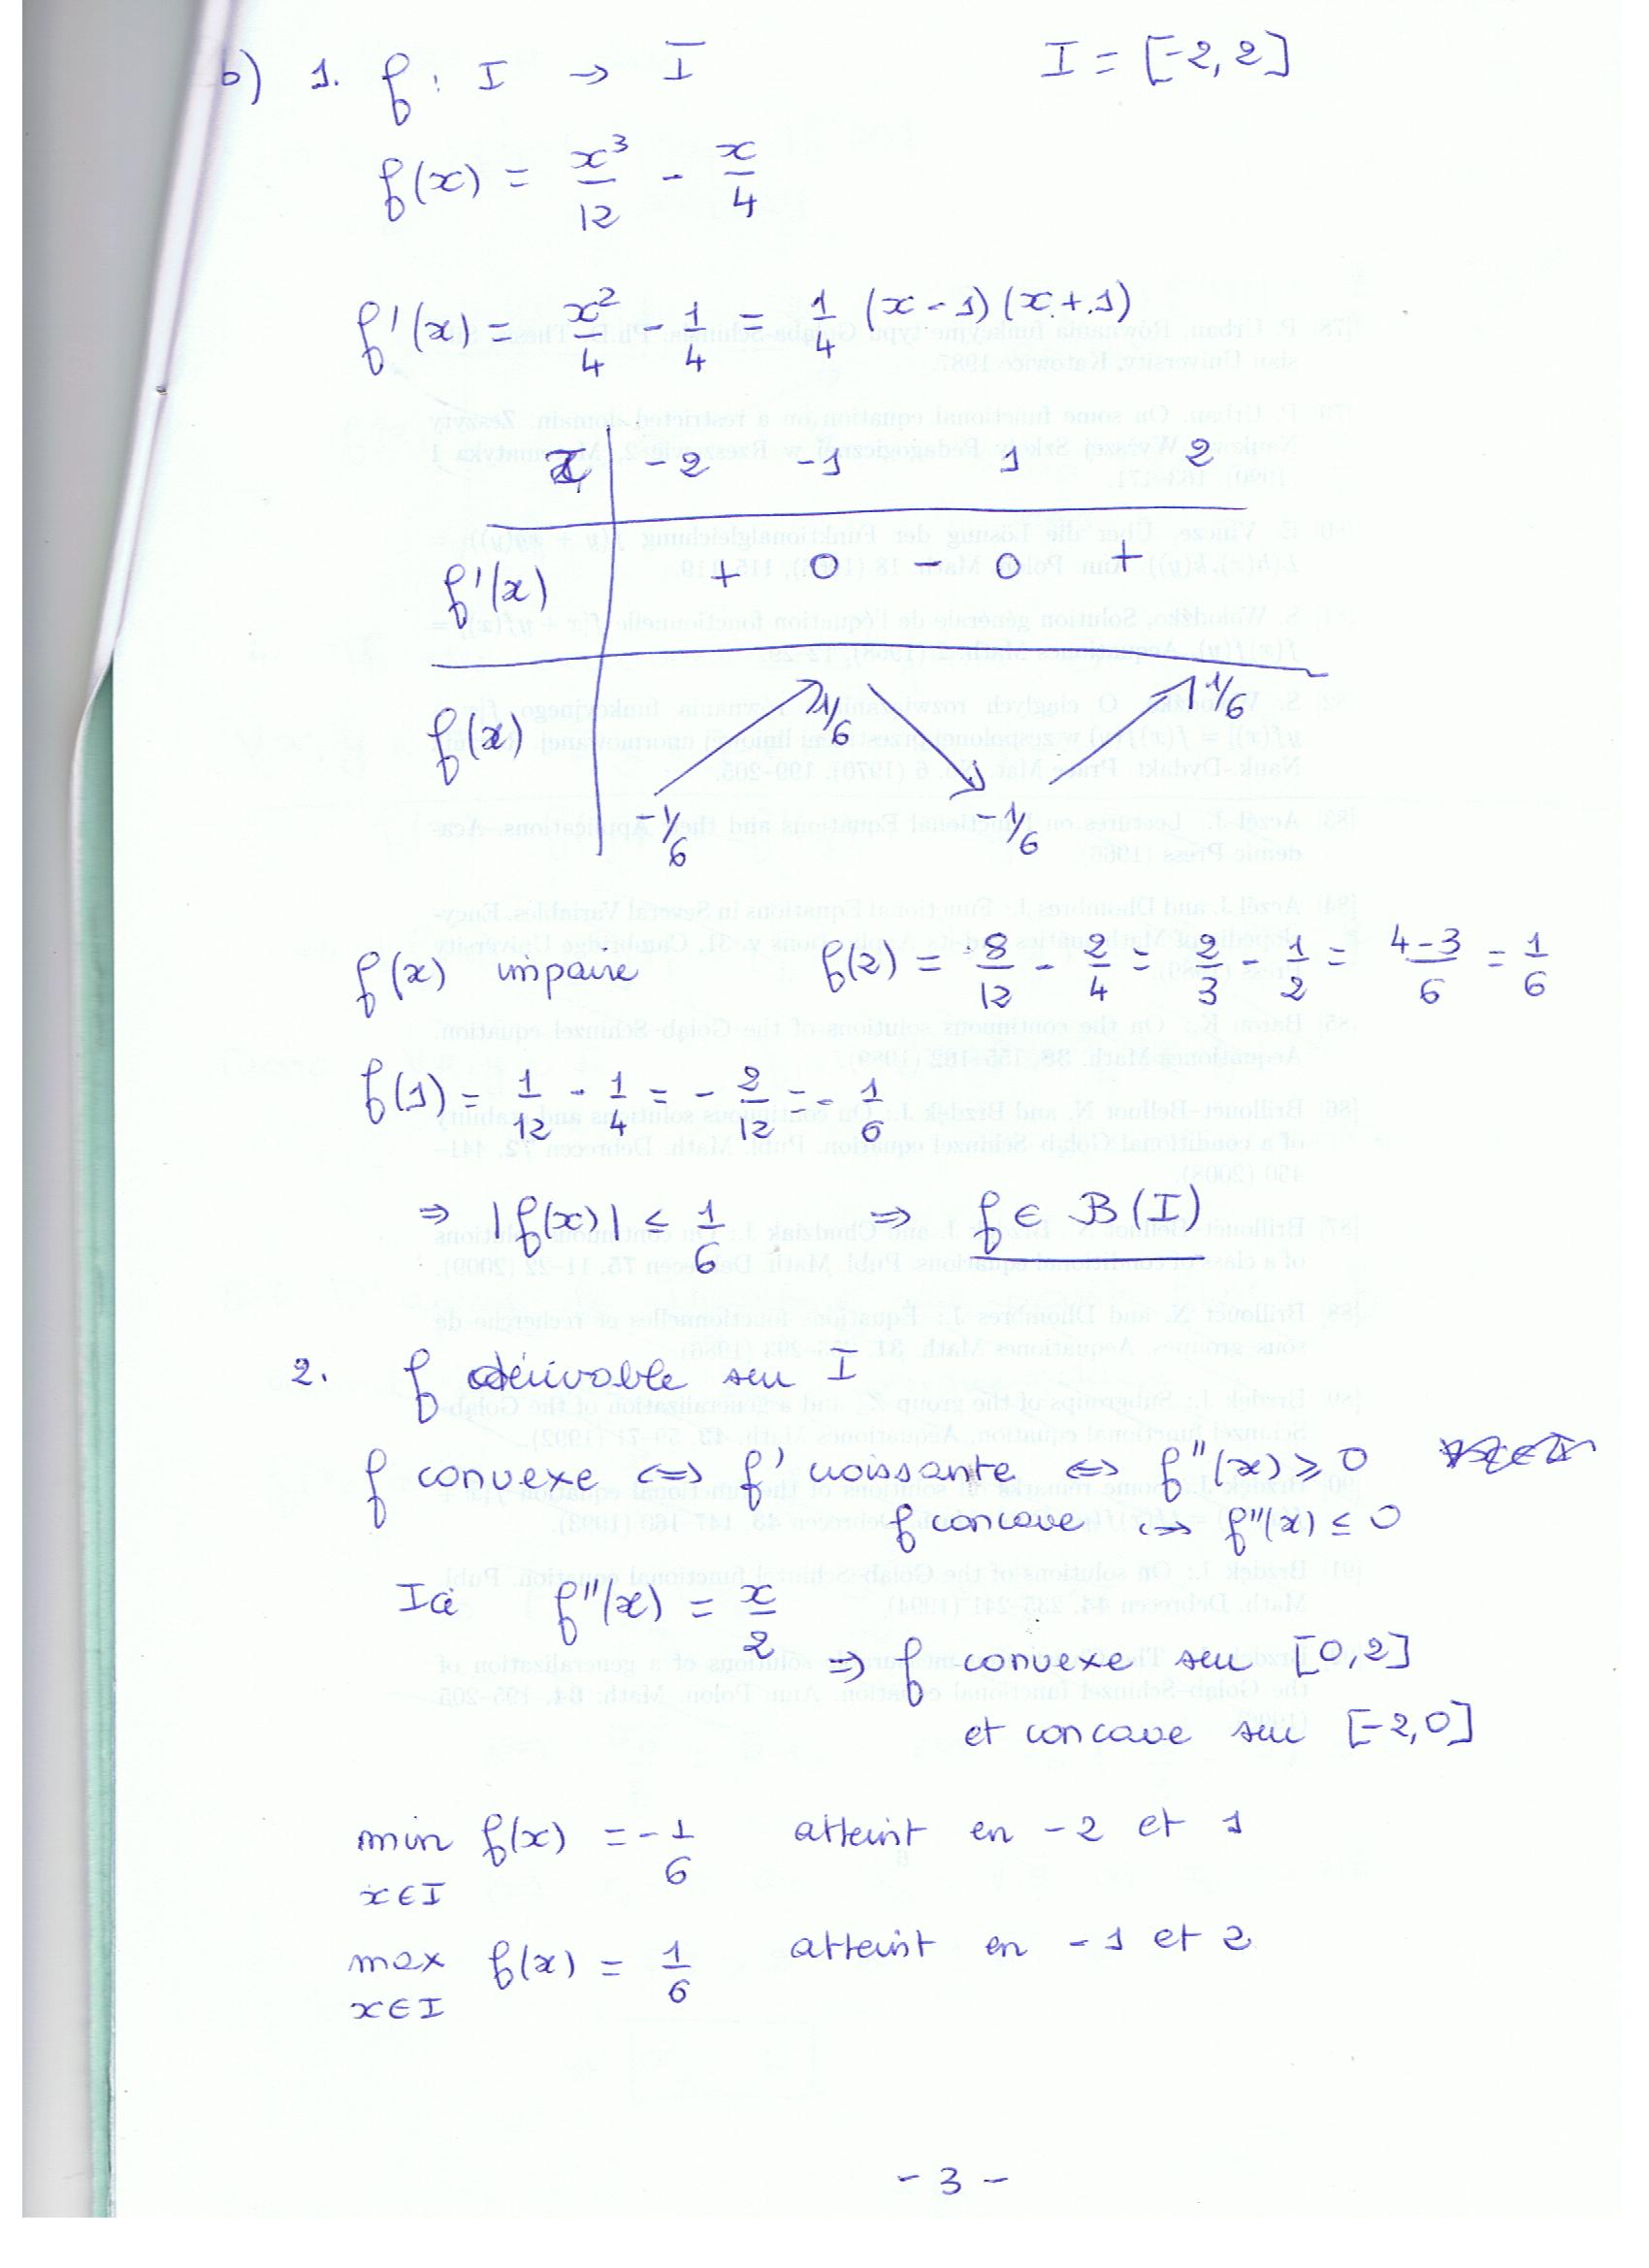 b) 1. f : I → I I = [-2, 2]
f(x) = x³/12 - x/4
f'(x) = x²/4 - 1/4 = 1/4 (x - 1)(x + 1)
x -2 -1 1 2
f'(x) + 0 - 0 +
f(x) -1/6 ↗ 1/6 ↘ -1/6 ↗ 1/6
f(x) impaire f(2) = 8/12 - 2/4 = 2/3 - 1/2 = 4-3/6 = 1/6
f(1) = 1/12 - 1/4 = - 2/12 = - 1/6
⇒ |f(x)| ≤ 1/6 ⇒ f ∈ B(I)
2. f dérivable sur I
f convexe ⇔ f' croissante ⇔ f''(x) ≥ 0
f concave ⇔ f''(x) ≤ 0
Ici f''(x) = x/2
⇒ f convexe sur [0,2]
et concave sur [-2,0]
min f(x) = - 1/6 atteint en -2 et 1
x ∈ I
max f(x) = 1/6 atteint en -1 et 2
x ∈ I
- 3 -